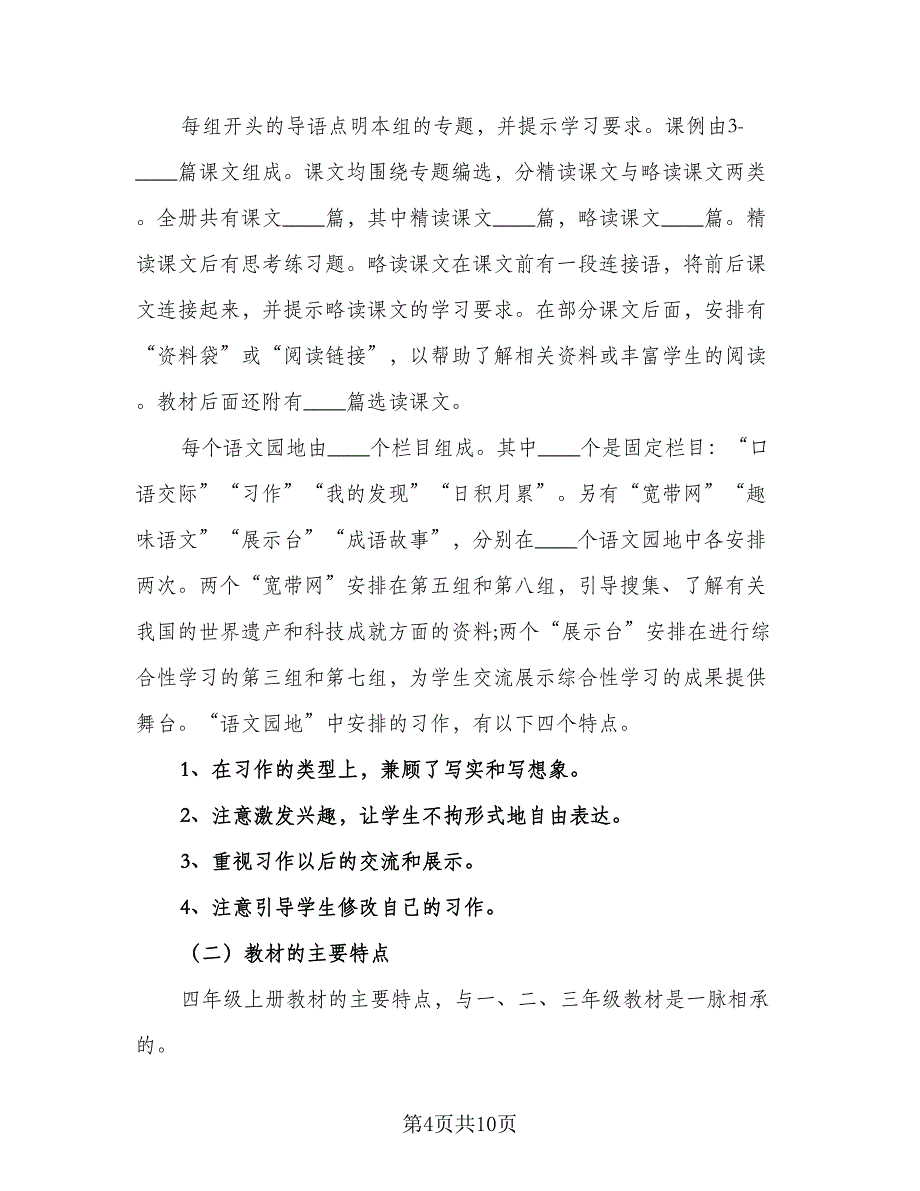 每组开头的导语点明本组的专题，并提示学习要求。课例由3-
____篇课文组成。课文均围绕专题编选，分精读课文与略读课文两类
。全册共有课文____篇，其中精读课文____篇，略读课文____篇。精
读课文后有思考练习题。略读课文在课文前有一段连接语，将前后课
文连接起来，并提示略读课文的学习要求。在部分课文后面，安排有
“资料袋”或“阅读链接”，以帮助了解相关资料或丰富学生的阅读
。教材后面还附有____篇选读课文。
每个语文园地由____个栏目组成。其中____个是固定栏目：“口
语交际”“习作”“我的发现”“日积月累”。另有“宽带网”“趣
味语文”“展示台”“成语故事”，分别在____个语文园地中各安排
两次。两个“宽带网”安排在第五组和第八组，引导搜集、了解有关
我国的世界遗产和科技成就方面的资料;两个“展示台”安排在进行综
合性学习的第三组和第七组，为学生交流展示综合性学习的成果提供
舞台。“语文园地”中安排的习作，有以下四个特点。
1、在习作的类型上，兼顾了写实和写想象。
2、注意激发兴趣，让学生不拘形式地自由表达。
3、重视习作以后的交流和展示。
4、注意引导学生修改自己的习作。
（二）教材的主要特点
四年级上册教材的主要特点，与一、二、三年级教材是一脉相承
的。
第4页共10页